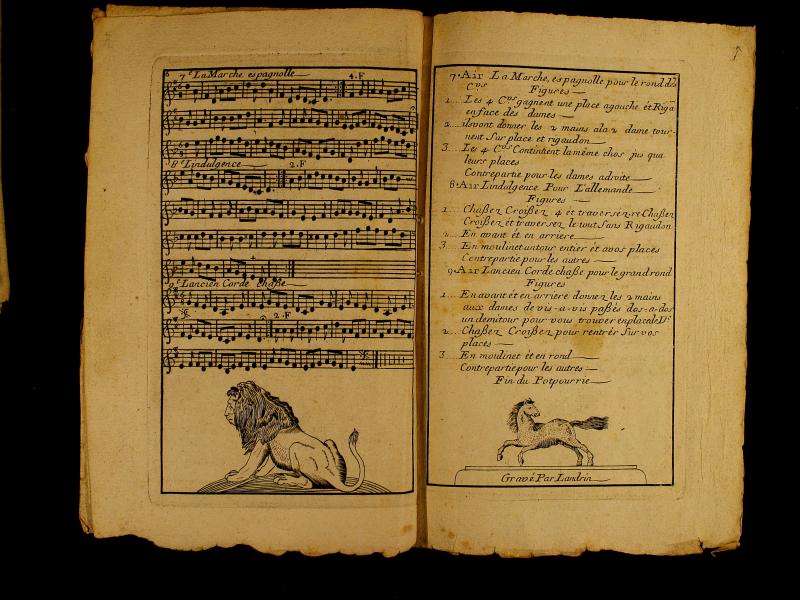 7.e La Marche espagnolle
4.F
8.e Lindulgence
2.F
9.e Lancien Corde chaße
2.F
7.e Air La Marche, espagnolle pour le rond des
Cvrs
Figures
1 Les 4 Cvrs gagnent une place agauche et Riga
en face des dames
2 ils vont donner les 2 mains ala 2 dame tour-
nent Sur place et rigaudon
3 Les 4 Cvrs Contintient la même chos jus qua
leurs places
Contrepartie pour les dames adroite
8.e Air Lindulgence Pour L'allemande
Figures
1 Chaßez Croißez 4 et traversez re Chaßez
Croißez et traversez le tout Sans Rigaudon
2 En avant et en arriere
3 En moulinet untour entier et avos places
Contrepartie pour les autres
9.e Air Lancien Corde chaße pour le grand rond
Figures
1 En avant et en arriere donnez les 2 mains
aux dames de vis-a-vis paßés dos-a-dos
un demitour pour vous trouver en place de Ds
2 Chaßez Croißez pour rentrér Sur vos
places
3 En moulinet et en rond
Contrepartie pour les autres
Fin du Potpourrie
Gravé Par Landrin